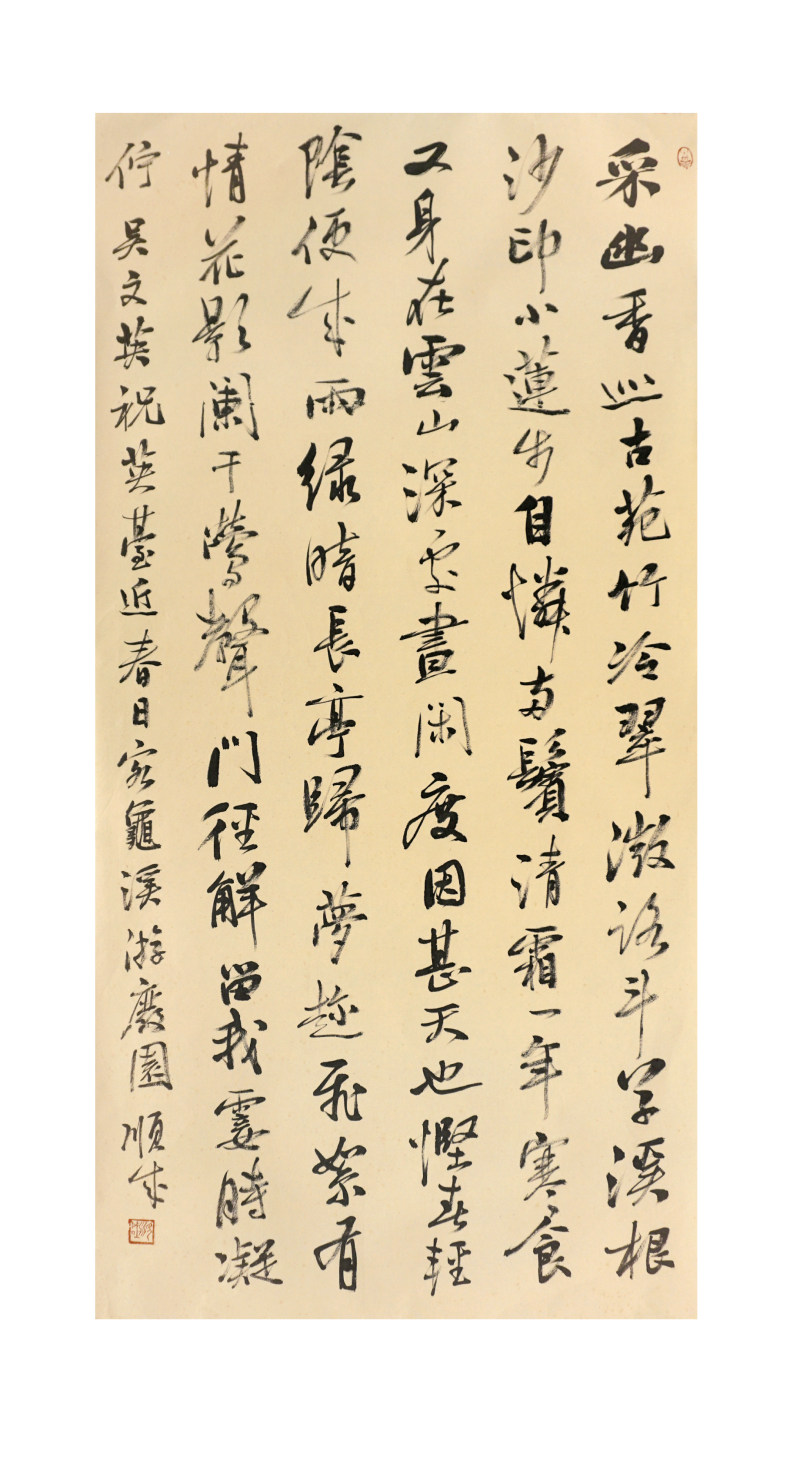 采幽香巡古苑竹冷翠微路斗草溪根
沙印小蓮步自憐兩鬢清霜一年寒食
又身在雲山深處晝閑度因甚天也慳春輕
陰便成雨綠暗長亭歸夢趁飛絮有
情花影闌干鶯聲門徑解留我霎時凝
佇 吳文英祝英臺近春日客龜溪游廢園 順成